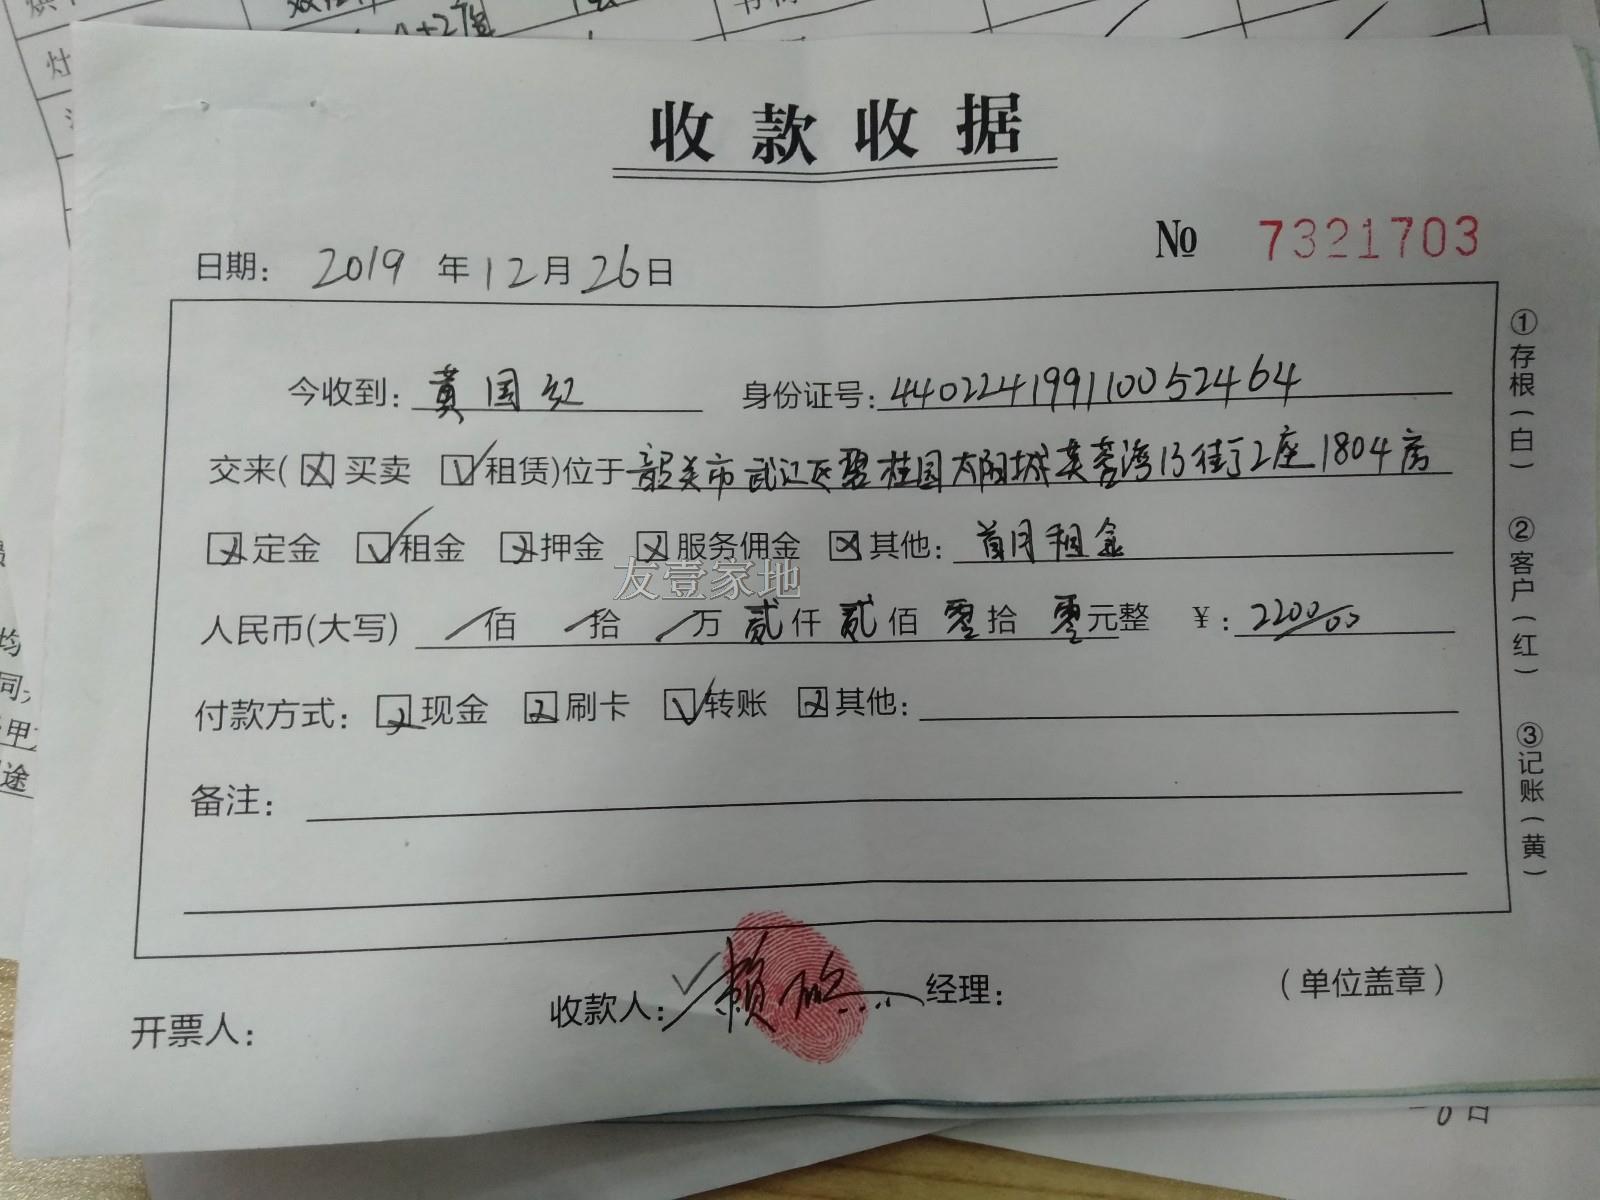 收款收据
№ 7321703
日期: 2019 年 12 月 26 日
今收到: 黄国红 身份证号: 440224199110052464
交来(☒买卖 ☑租赁)位于韶关市武江区碧桂园太阳城芙蓉湾13街12座1804房
☒定金 ☑租金 ☒押金 ☒服务佣金 ☒其他: 首月租金
友壹家地
人民币(大写) /佰 /拾 /万 贰仟 贰佰 零拾 零元整 ¥: 2200.00
付款方式: ☒现金 ☒刷卡 ☑转账 ☒其他:
备注:
开票人: 收款人: 赖 经理: (单位盖章)
①存根(白) ②客户(红) ③记账(黄)